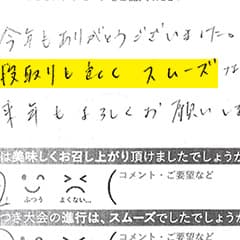 今年もありがとうございました。
段取りもよくて スムーズな
来年もよろしくお願いし
は美味しくお召し上がり頂けましたでしょうか
ふつう よくない… コメント・ご要望など
つき大会の進行は、スムーズでしたでしょうか
コメント・ご要望など